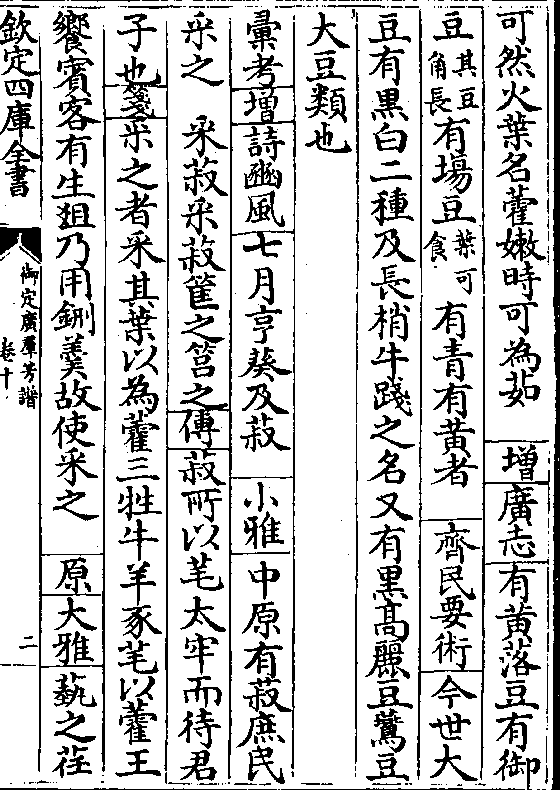 可然火葉名藿嫩時可為茹　增廣志有黃落豆有御
豆其豆角長有場豆葉可食有青有黃者　齊民要術今世大
豆有黑白二種及長梢牛踐之名又有黑高麗豆鷰豆
大豆類也
彚考增詩豳風七月亨葵及菽　小雅中原有菽庶民
采之　采菽采菽筐之筥之傳菽所以芼太牢而待君
子也箋采之者采其葉以為藿三牲牛羊豕芼以藿王
饗賔客有生俎乃用鉶羹故使采之　原大雅蓺之荏
欽定四庫全書
御定廣羣芳譜
卷十
二